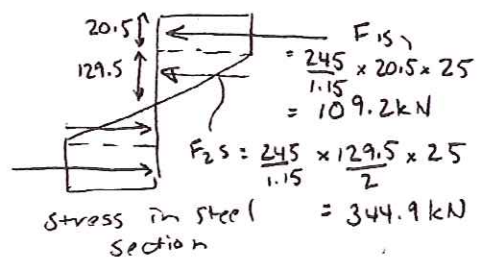 20.5
F₁s,
= 245/1.15 × 20.5 × 25
129.5
= 109.2kN
F₂s = 245/1.15 × 129.5/2 × 25
= 344.9kN
stress in steel
section